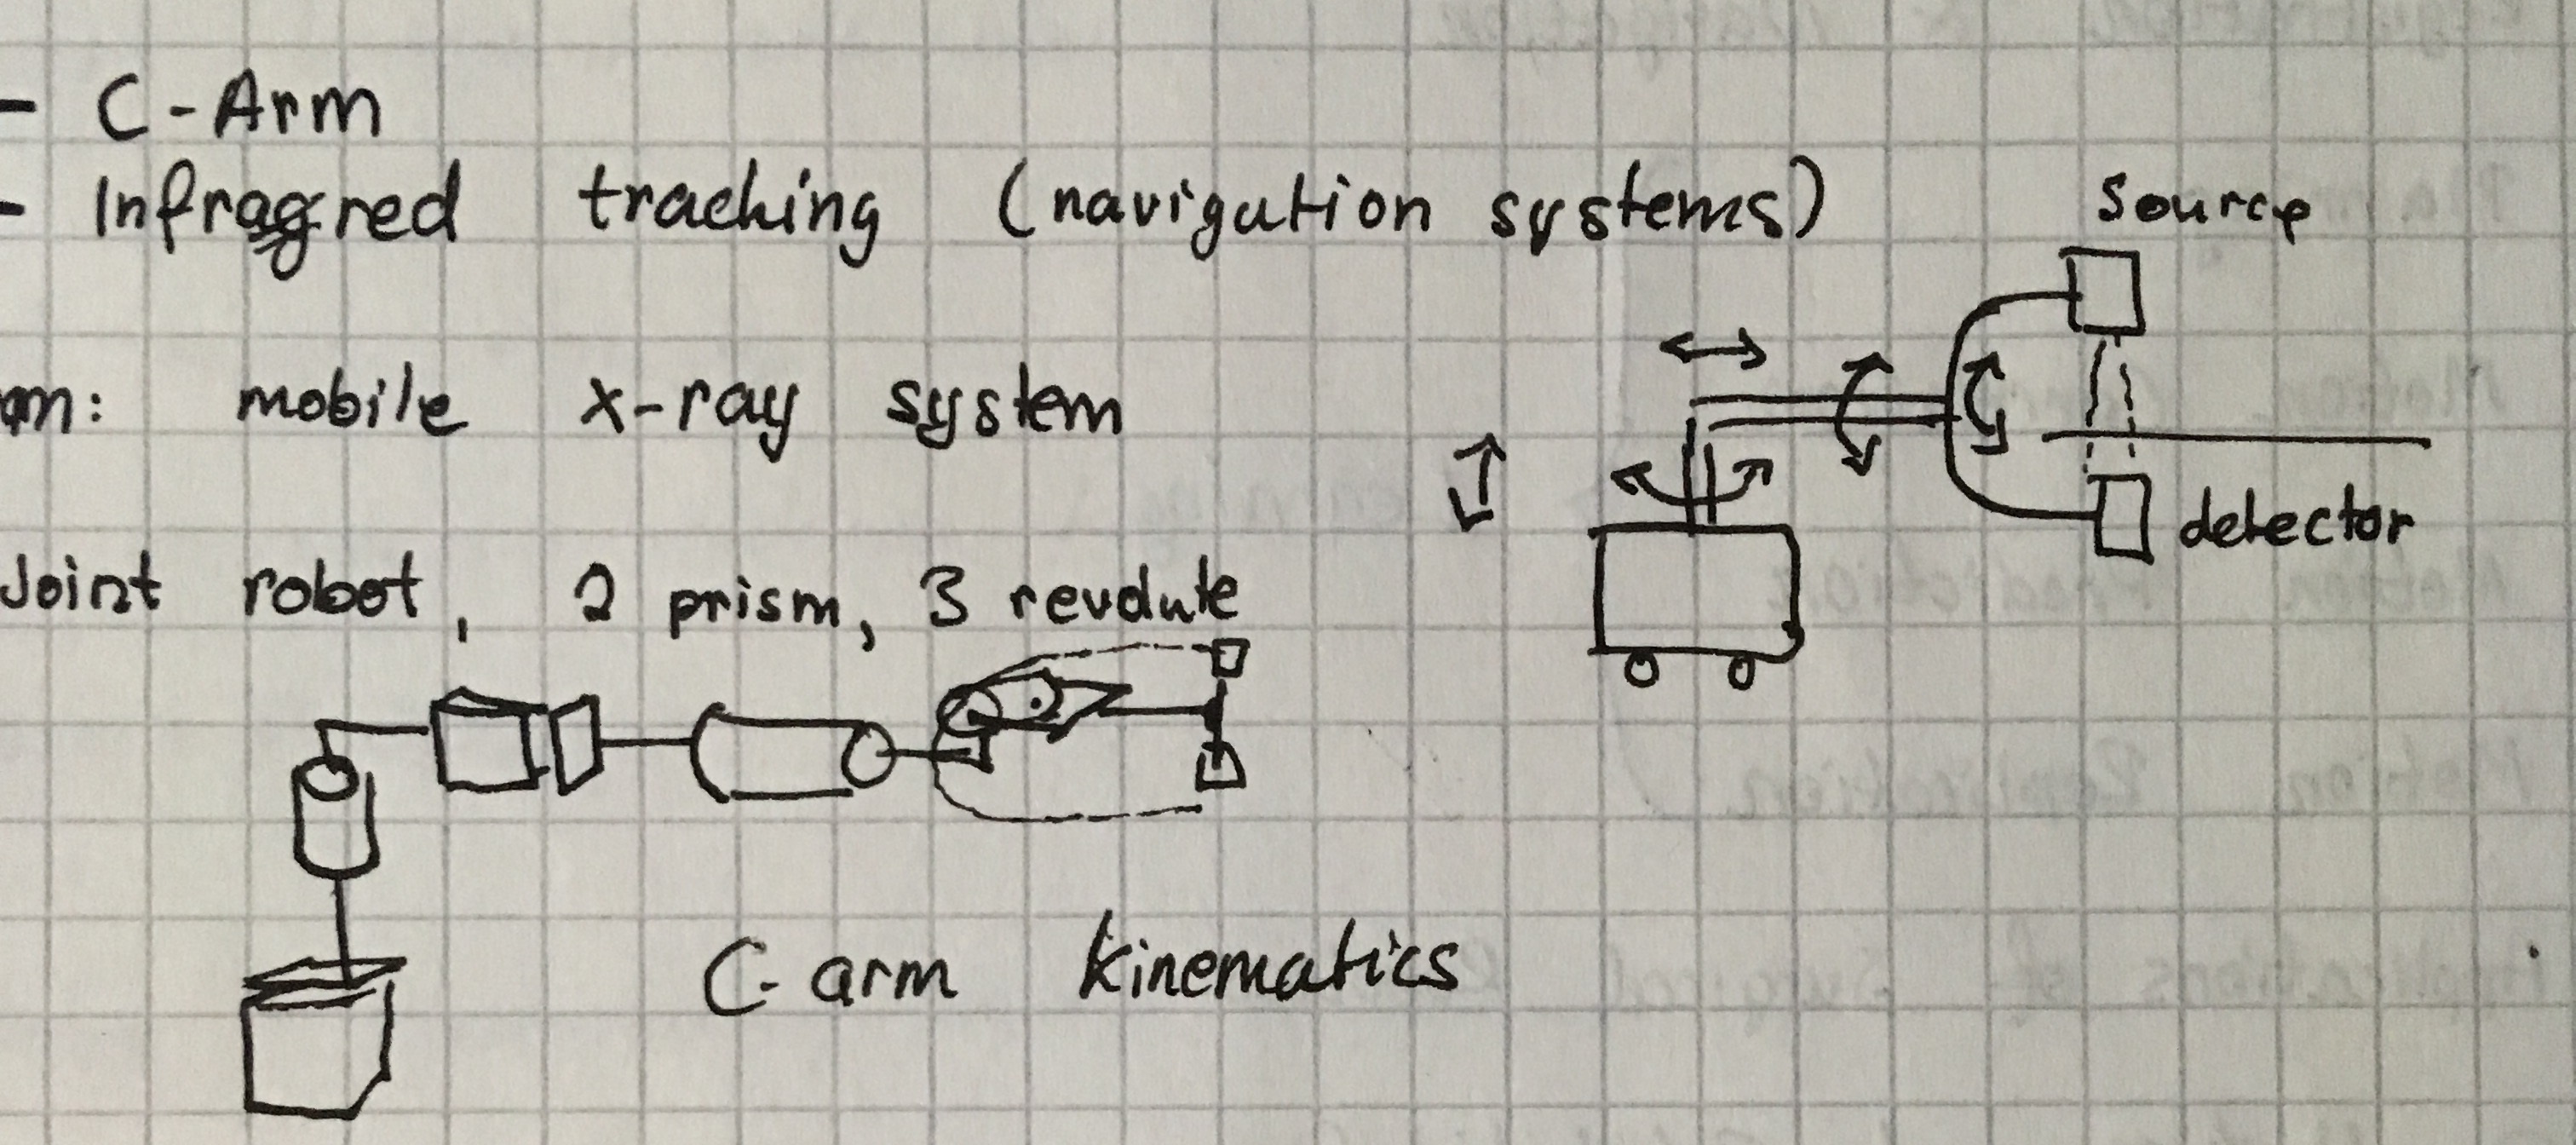 - C-Arm
- Infragred tracking (navigation systems)
am: mobile x-ray system
Joint robot, 2 prism, 3 revdute
source
detector
C-arm kinematics